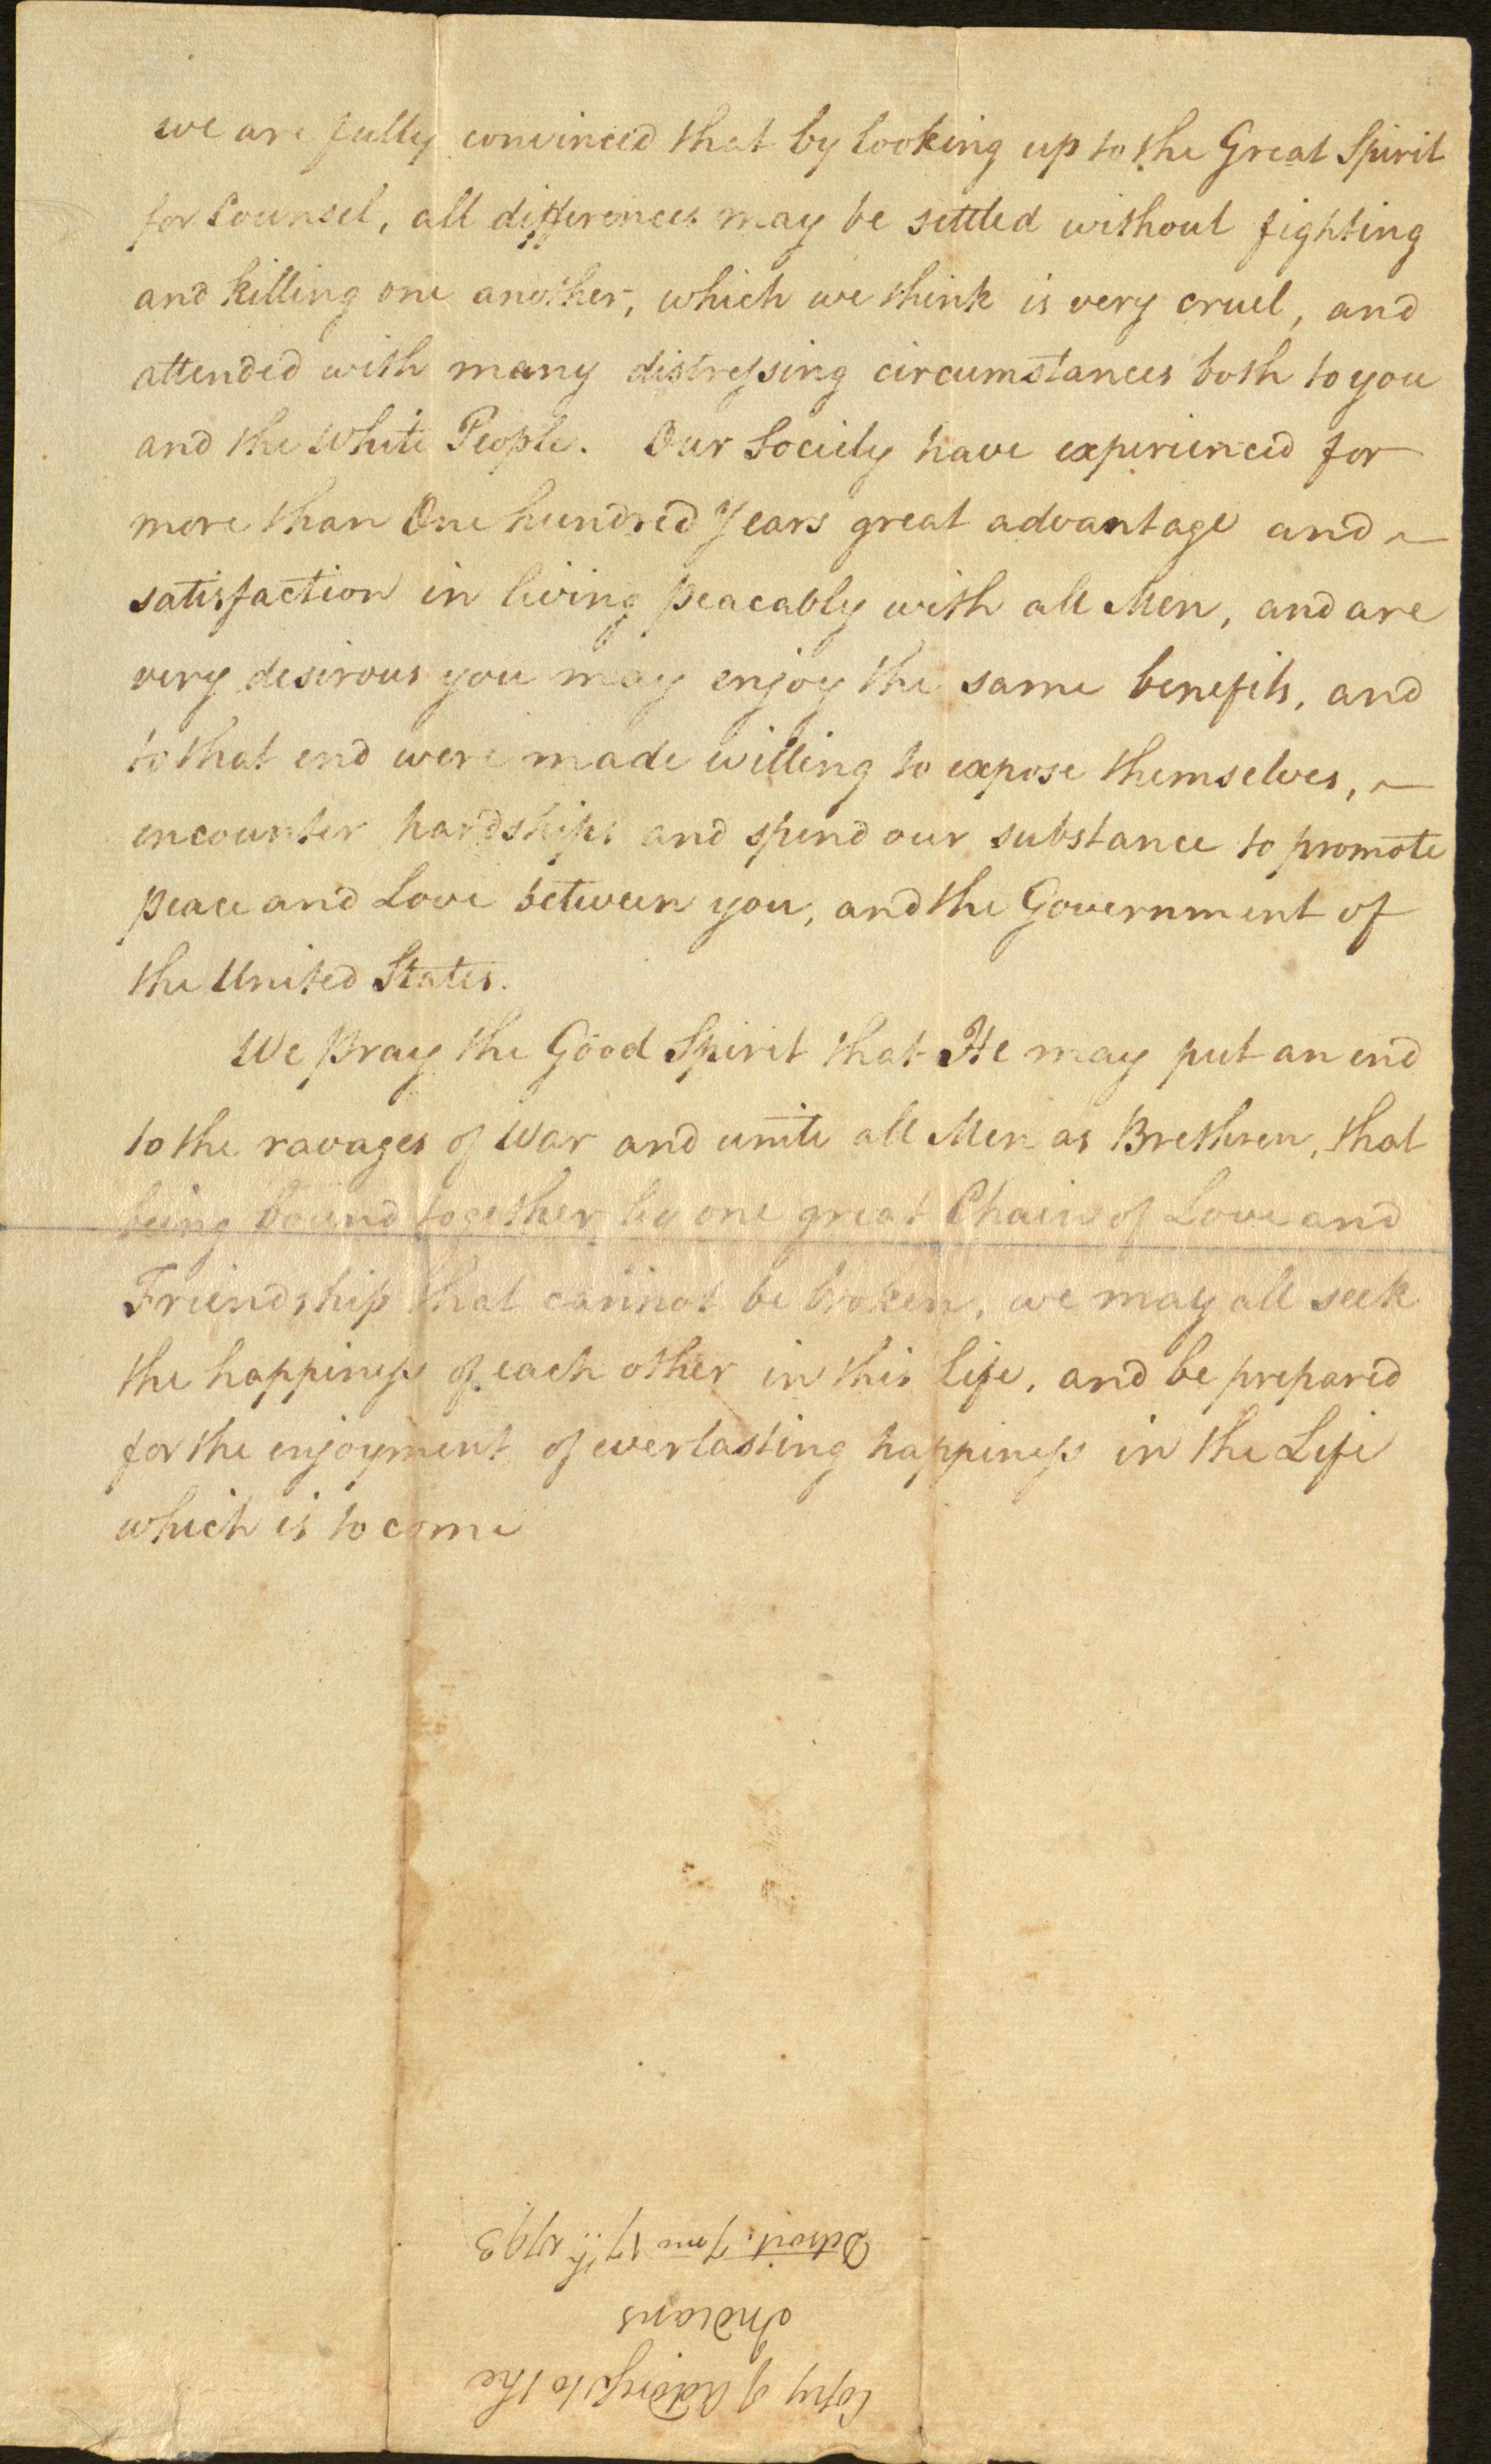 we are fully convinced that by looking up to the Great Spirit
for Counsel, all differences may be settled without fighting
and killing one another, which we think is very cruel, and
attended with many distressing circumstances both to you
and the White People. Our Society have experienced for
more than One hundred Years great advantage and ~
satisfaction in living peacably with all Men, and are
very desirous you may enjoy the same benefits, and
to that end were made willing to expose themselves, ~
encounter hardships and spend our substance to promote
peace and Love between you, and the Government of
the United States.
We pray the Good Spirit that He may put an end
to the ravages of War and unite all Men as Brethren, that
being bound together by one great Chain of Love and
Friendship that cannot be broken, we may all seek
the happiness of each other in this life, and be prepared
for the enjoyment of everlasting happiness in the Life
which is to come
Copy of Address to the
Indians
Detroit. 7mo 17th 1793